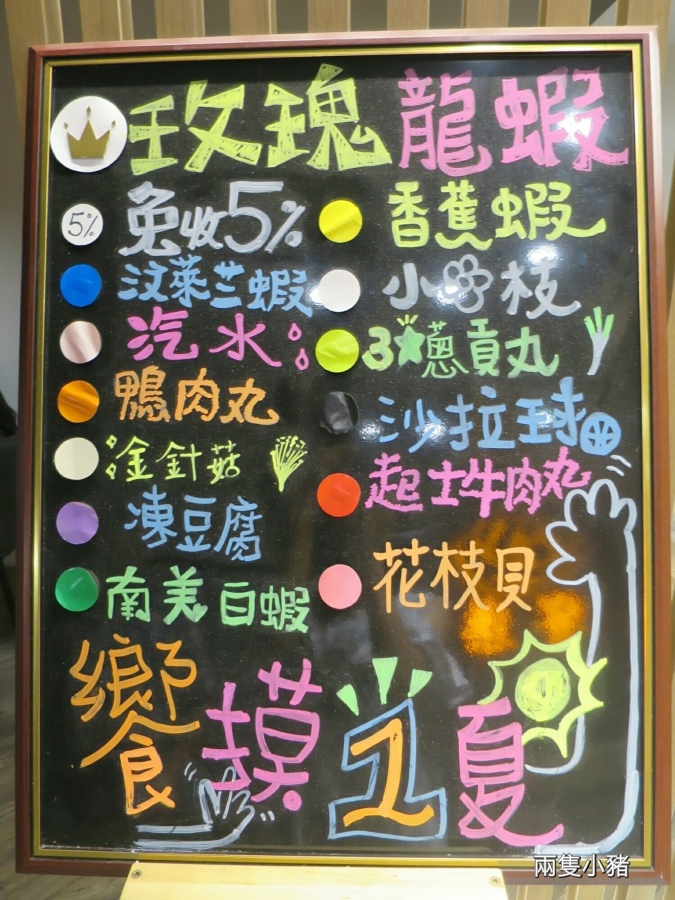 玫瑰龍蝦
5% 免收5%
香蕉蝦
汶萊兰蝦
小花枝
汽水
3★蔥貢丸
鴨肉丸
沙拉球
金針菇
起士牛肉丸
凍豆腐
花枝貝
南美白蝦
饗摸1夏
兩隻小豬